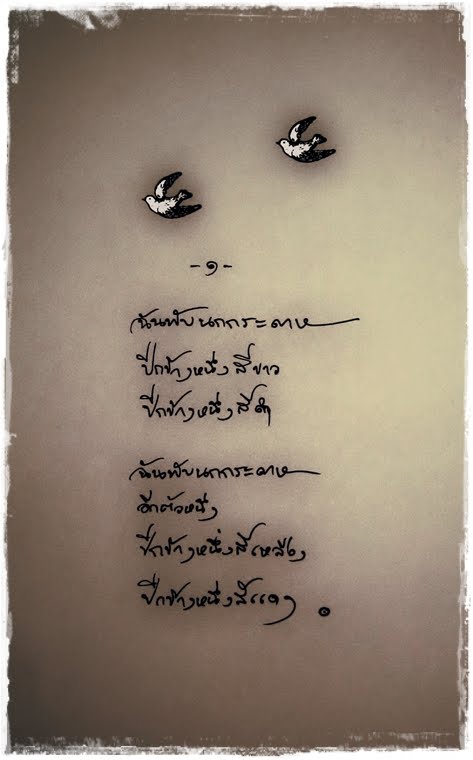 -๑-
ฉันพับนกกระดาษ
ปีกข้างหนึ่งสีขาว
ปีกข้างหนึ่งสีดำ
ฉันพับนกกระดาษ
อีกตัวหนึ่ง
ปีกข้างหนึ่งสีเหลือง
ปีกข้างหนึ่งสีแดง ๏